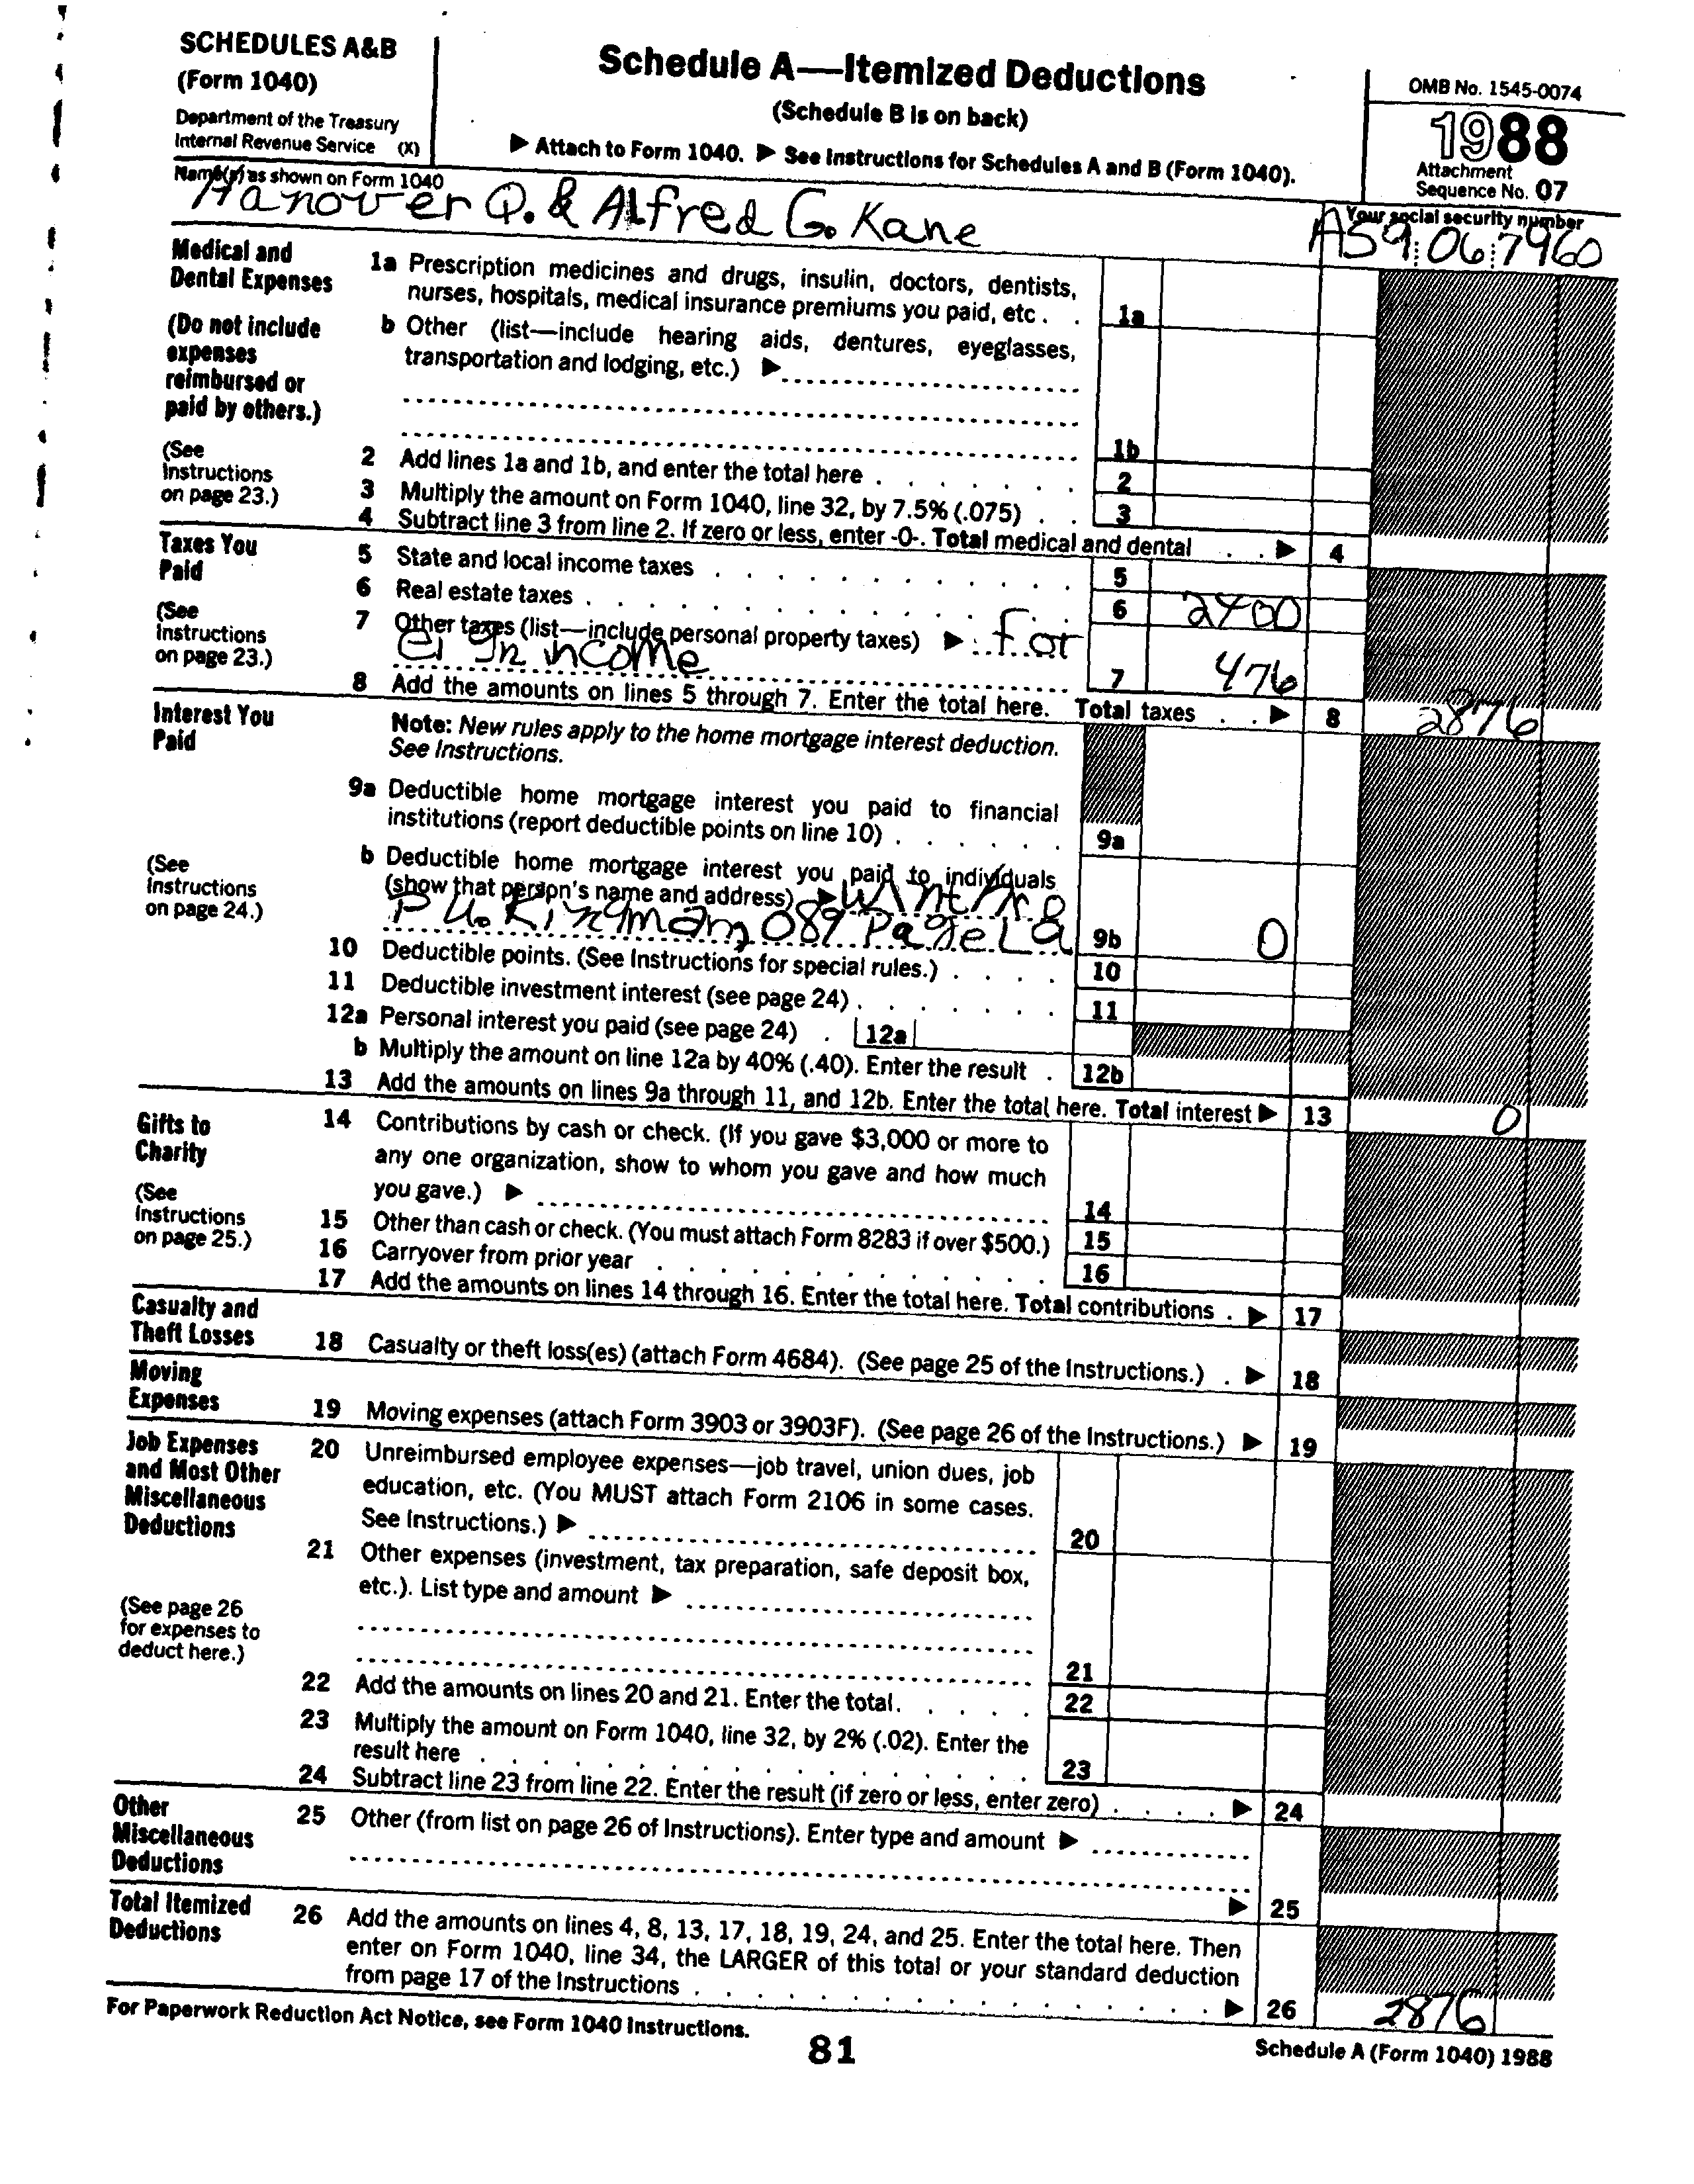 SCHEDULES A&B
(Form 1040)
Department of the Treasury
Internal Revenue Service (X)
Schedule A—Itemized Deductions
(Schedule B is on back)
▶ Attach to Form 1040. ▶ See Instructions for Schedules A and B (Form 1040).
OMB No. 1545-0074
1988
Attachment
Sequence No. 07
Name(s) as shown on Form 1040
Hanover Q. & Alfred G. Kane
Your social security number
A59 06 7960
Medical and
Dental Expenses
(Do not include
expenses
reimbursed or
paid by others.)
(See
Instructions
on page 23.)
1a Prescription medicines and drugs, insulin, doctors, dentists,
nurses, hospitals, medical insurance premiums you paid, etc . . 1a
b Other (list—include hearing aids, dentures, eyeglasses,
transportation and lodging, etc.) ▶
1b
2 Add lines 1a and 1b, and enter the total here . . . . . . . 2
3 Multiply the amount on Form 1040, line 32, by 7.5% (.075) . . 3
4 Subtract line 3 from line 2. If zero or less, enter -0-. Total medical and dental . . ▶ 4
Taxes You
Paid
(See
Instructions
on page 23.)
5 State and local income taxes . . . . . . . . . . . . 5
6 Real estate taxes . . . . . . . . . . . . . . . 6 2400
7 Other taxes (list—include personal property taxes) ▶ For
eign income 7 476
8 Add the amounts on lines 5 through 7. Enter the total here. Total taxes . . ▶ 8 2876
Interest You
Paid
(See
Instructions
on page 24.)
Note: New rules apply to the home mortgage interest deduction.
See Instructions.
9a Deductible home mortgage interest you paid to financial
institutions (report deductible points on line 10) . . . . . . 9a
b Deductible home mortgage interest you paid to individuals
(show that person's name and address) ▶
Kingman, 089 Page La 9b 0
10 Deductible points. (See Instructions for special rules.) . . . . 10
11 Deductible investment interest (see page 24) . . . . . . . 11
12a Personal interest you paid (see page 24) . 12a
b Multiply the amount on line 12a by 40% (.40). Enter the result . 12b
13 Add the amounts on lines 9a through 11, and 12b. Enter the total here. Total interest ▶ 13 0
Gifts to
Charity
(See
Instructions
on page 25.)
14 Contributions by cash or check. (If you gave $3,000 or more to
any one organization, show to whom you gave and how much
you gave.) ▶ 14
15 Other than cash or check. (You must attach Form 8283 if over $500.) 15
16 Carryover from prior year . . . . . . . . . . . . . 16
17 Add the amounts on lines 14 through 16. Enter the total here. Total contributions . ▶ 17
Casualty and
Theft Losses
18 Casualty or theft loss(es) (attach Form 4684). (See page 25 of the Instructions.) . ▶ 18
Moving
Expenses
19 Moving expenses (attach Form 3903 or 3903F). (See page 26 of the Instructions.) ▶ 19
Job Expenses
and Most Other
Miscellaneous
Deductions
(See page 26
for expenses to
deduct here.)
20 Unreimbursed employee expenses—job travel, union dues, job
education, etc. (You MUST attach Form 2106 in some cases.
See Instructions.) ▶ 20
21 Other expenses (investment, tax preparation, safe deposit box,
etc.). List type and amount ▶
21
22 Add the amounts on lines 20 and 21. Enter the total. . . . . 22
23 Multiply the amount on Form 1040, line 32, by 2% (.02). Enter the
result here . . . . . . . . . . . . . . . . . 23
24 Subtract line 23 from line 22. Enter the result (if zero or less, enter zero) . . . . ▶ 24
Other
Miscellaneous
Deductions
25 Other (from list on page 26 of Instructions). Enter type and amount ▶
▶ 25
Total Itemized
Deductions
26 Add the amounts on lines 4, 8, 13, 17, 18, 19, 24, and 25. Enter the total here. Then
enter on Form 1040, line 34, the LARGER of this total or your standard deduction
from page 17 of the Instructions . . . . . . . . . . . . . . . . ▶ 26 2876
For Paperwork Reduction Act Notice, see Form 1040 Instructions.
81
Schedule A (Form 1040) 1988